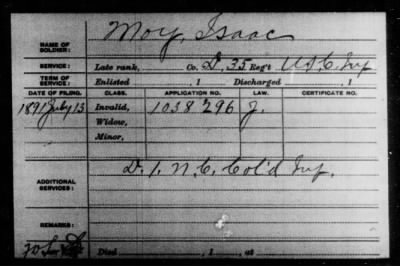 NAME OF SOLDIER: Moy, Isaac
SERVICE: Late rank, Co. D, 35 Reg't U.S.C. Inf
TERM OF SERVICE: Enlisted , 1 Discharged , 1
DATE OF FILING. CLASS. APPLICATION NO. LAW. CERTIFICATE NO.
1891 July 13 Invalid, 1038 296 J.
Widow,
Minor,
ADDITIONAL SERVICES: D. 1. N.C. Col'd Inf.
REMARKS:
Died , 1 , at